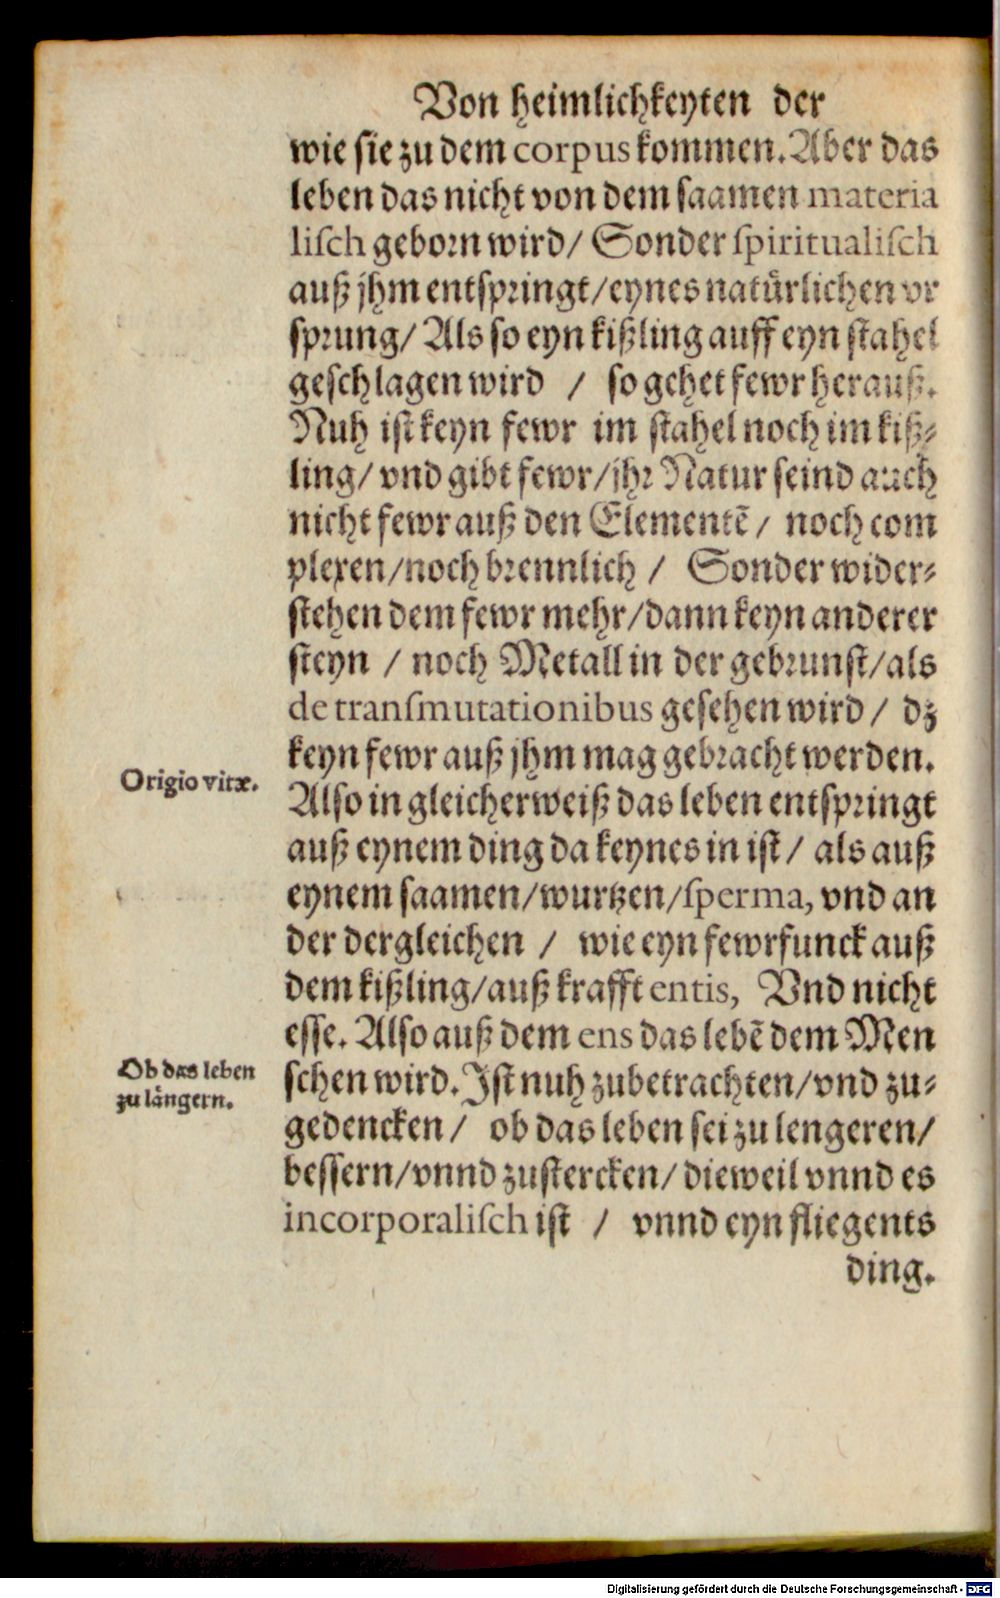 Von heimlichkeyten der
wie sie zu dem corpus kommen. Aber das
leben das nicht von dem saamen materia
lisch geborn wird/ Sonder spiritualisch
auß jhm entspringt/eynes natuͤrlichen vr
sprung/ Als so eyn kißling auff eyn stahel
geschlagen wird / so gehet fewr herauß.
Nuh ist keyn fewr im stahel noch im kiß-
ling/ vnd gibt fewr/jhr Natur seind auch
nicht fewr auß den Elementẽ/ noch com
plexen/noch brennlich / Sonder wider-
stehen dem fewr mehr/dann keyn anderer
steyn / noch Metall in der gebrunst/als
de transmutationibus gesehen wird/ dz
keyn fewr auß jhm mag gebracht werden.
Origio vitæ.
Also in gleicherweiß das leben entspringt
auß eynem ding da keynes in ist/ als auß
eynem saamen/wurtzen/sperma, vnd an
der dergleichen / wie eyn fewrfunck auß
dem kißling/auß krafft entis, Vnd nicht
esse. Also auß dem ens das lebẽ dem Men
Ob das leben
zu laͤngern.
schen wird. Jst nuh zubetrachten/vnd zu-
gedencken/ ob das leben sei zu lengeren/
bessern/vnnd zustercken/ dieweil vnnd es
incorporalisch ist / vnnd eyn fliegents
ding.
Digitalisierung gefördert durch die Deutsche Forschungsgemeinschaft - DFG